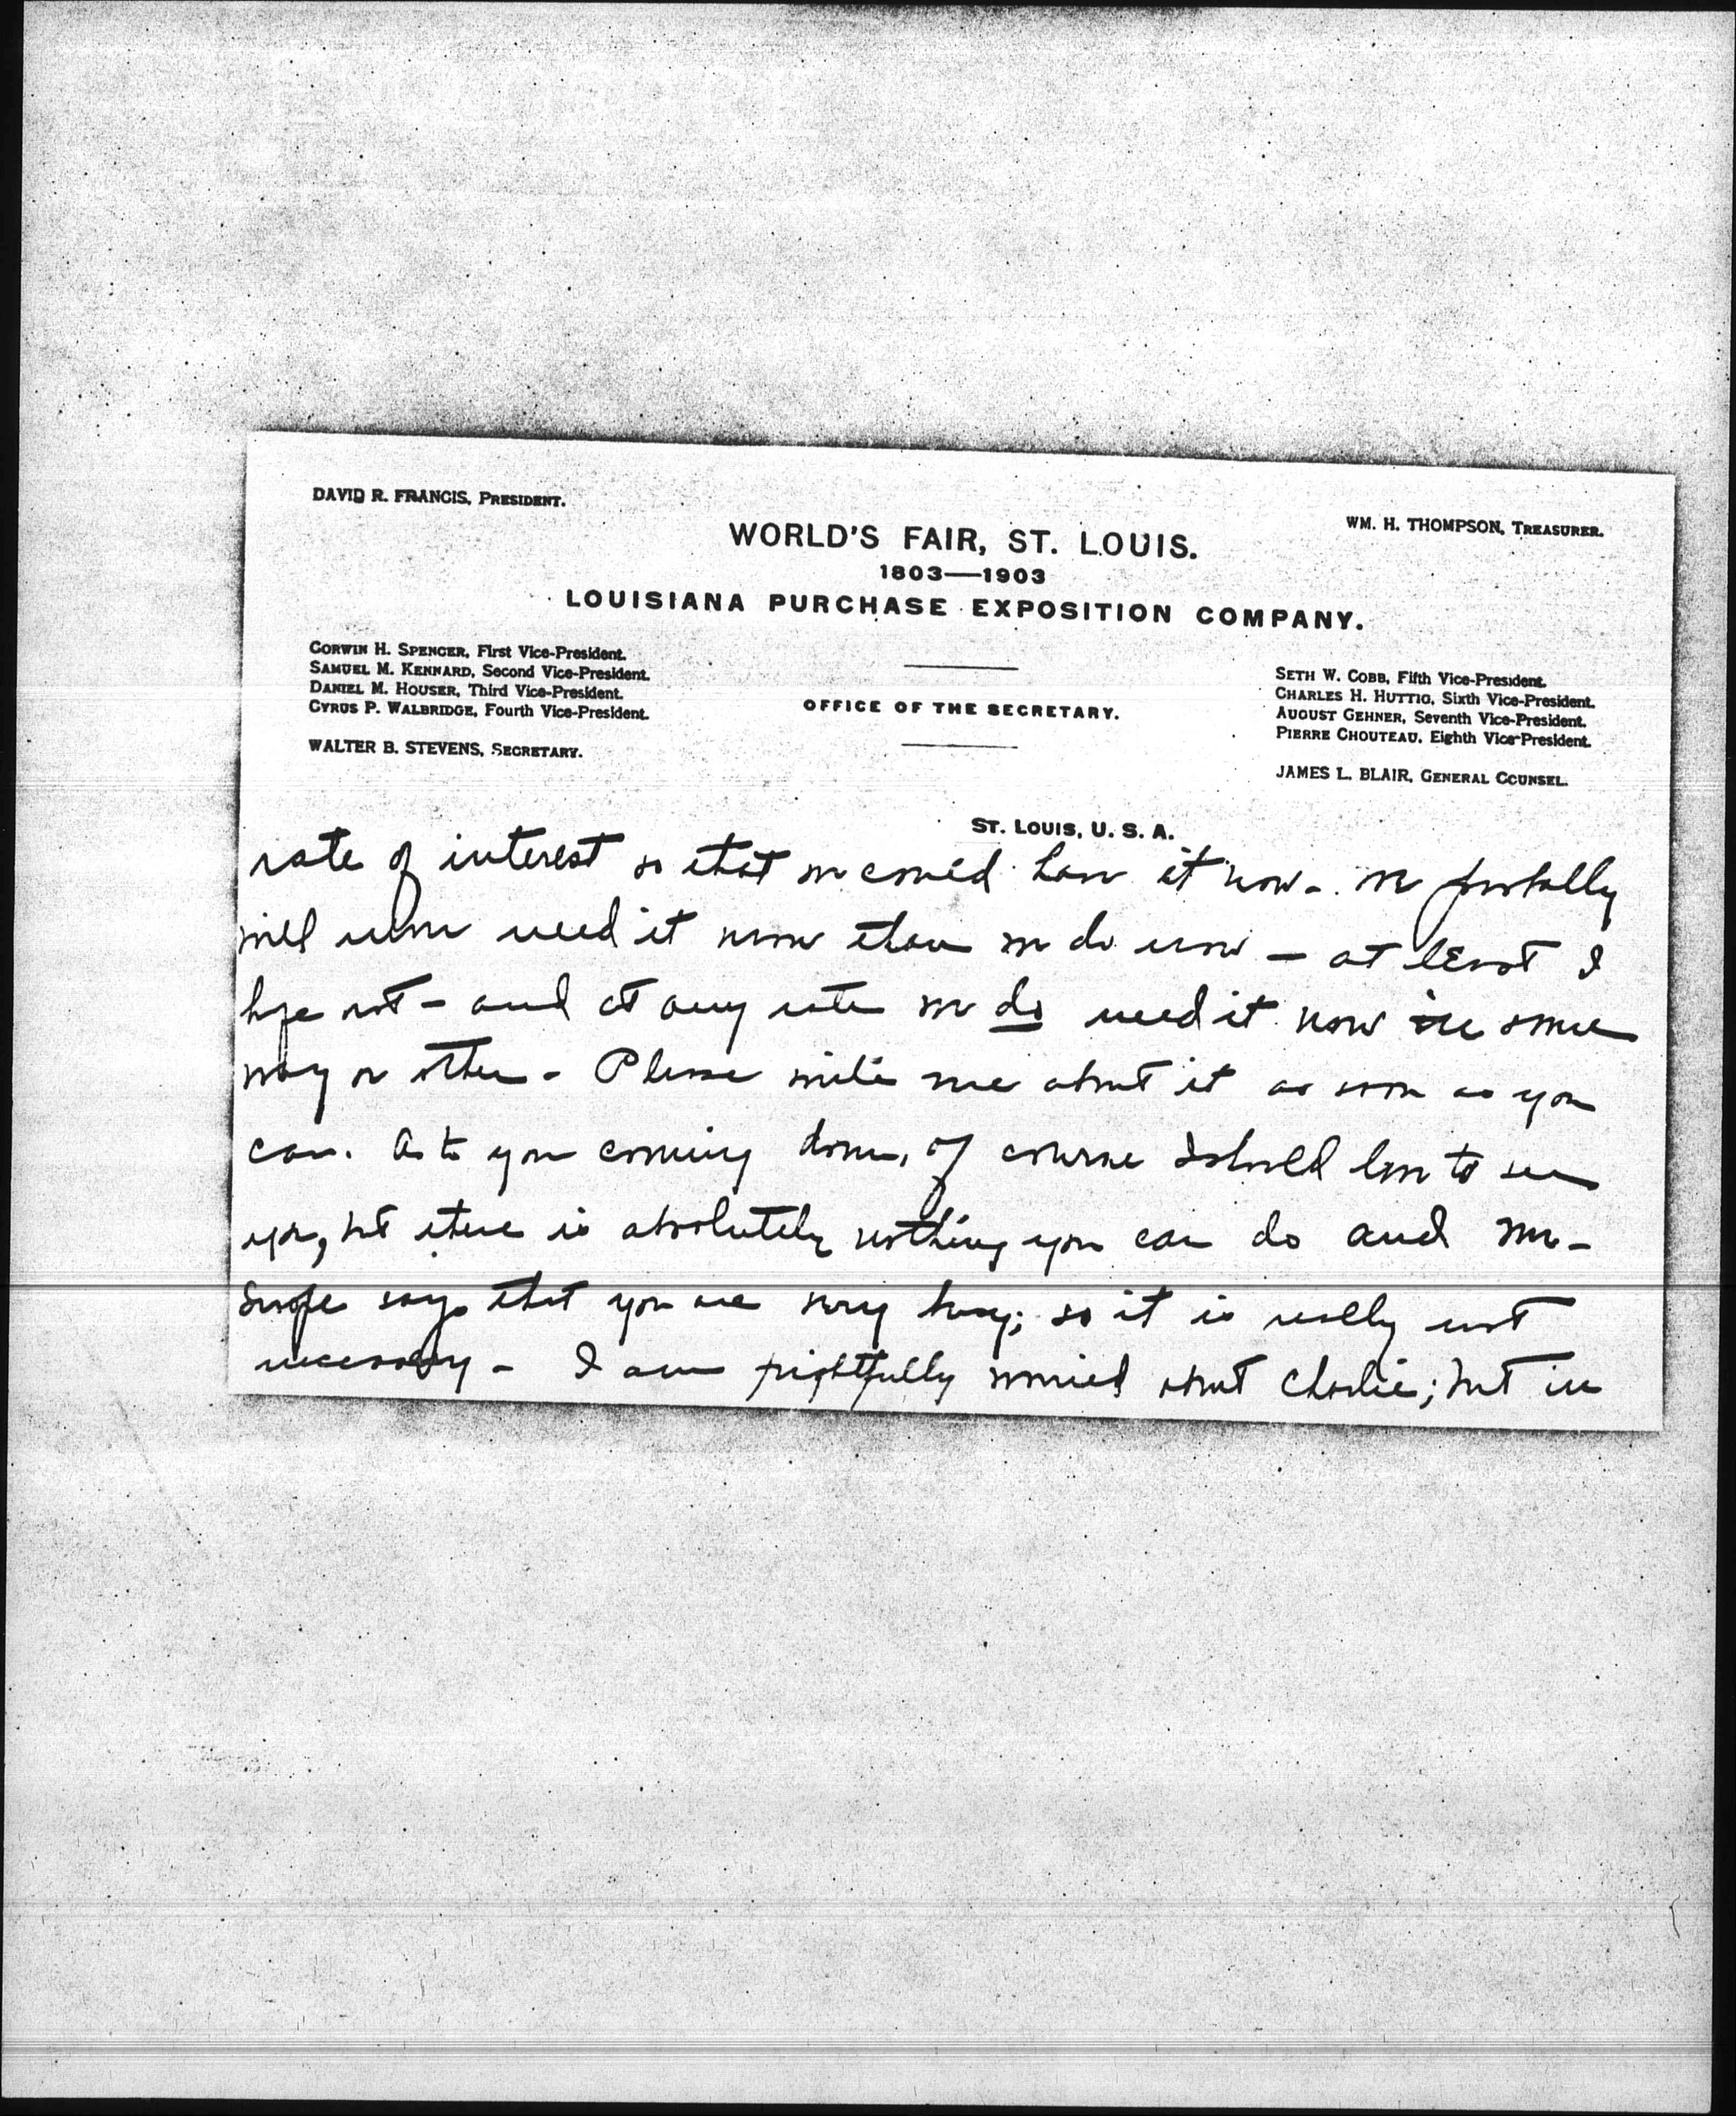 DAVID R. FRANCIS, PRESIDENT.
WM. H. THOMPSON, TREASURER.
WORLD'S FAIR, ST. LOUIS.
1803—1903
LOUISIANA PURCHASE EXPOSITION COMPANY.
CORWIN H. SPENCER, First Vice-President.
SAMUEL M. KENNARD, Second Vice-President.
DANIEL M. HOUSER, Third Vice-President.
CYRUS P. WALBRIDGE, Fourth Vice-President.
WALTER B. STEVENS, SECRETARY.
OFFICE OF THE SECRETARY.
SETH W. COBB, Fifth Vice-President.
CHARLES H. HUTTIG, Sixth Vice-President.
AUGUST GEHNER, Seventh Vice-President.
PIERRE CHOUTEAU, Eighth Vice-President.
JAMES L. BLAIR, GENERAL COUNSEL.
ST. LOUIS, U. S. A.
rate of interest so that we could have it now - we probably
will never need it more than we do now - at least I
hope not - and at any rate we do need it now in some
way or other - Please write me about it as soon as you
can. As to you coming down, of course I should love to see
you, but there is absolutely nothing you can do and Mr.
says that you are very busy; so it is really not
necessary - I am frightfully worried about Charlie; but in